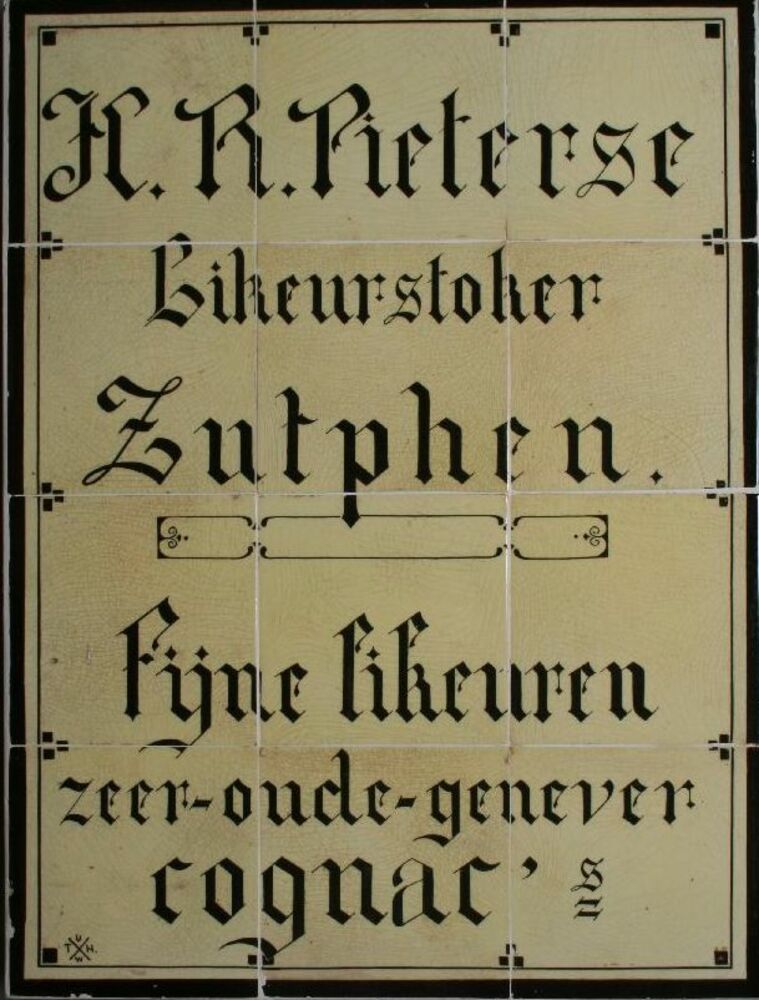 H. R. Pieterse
Likeurstoker
Zutphen.
Fijne likeuren
zeer-oude-genever
cognac's